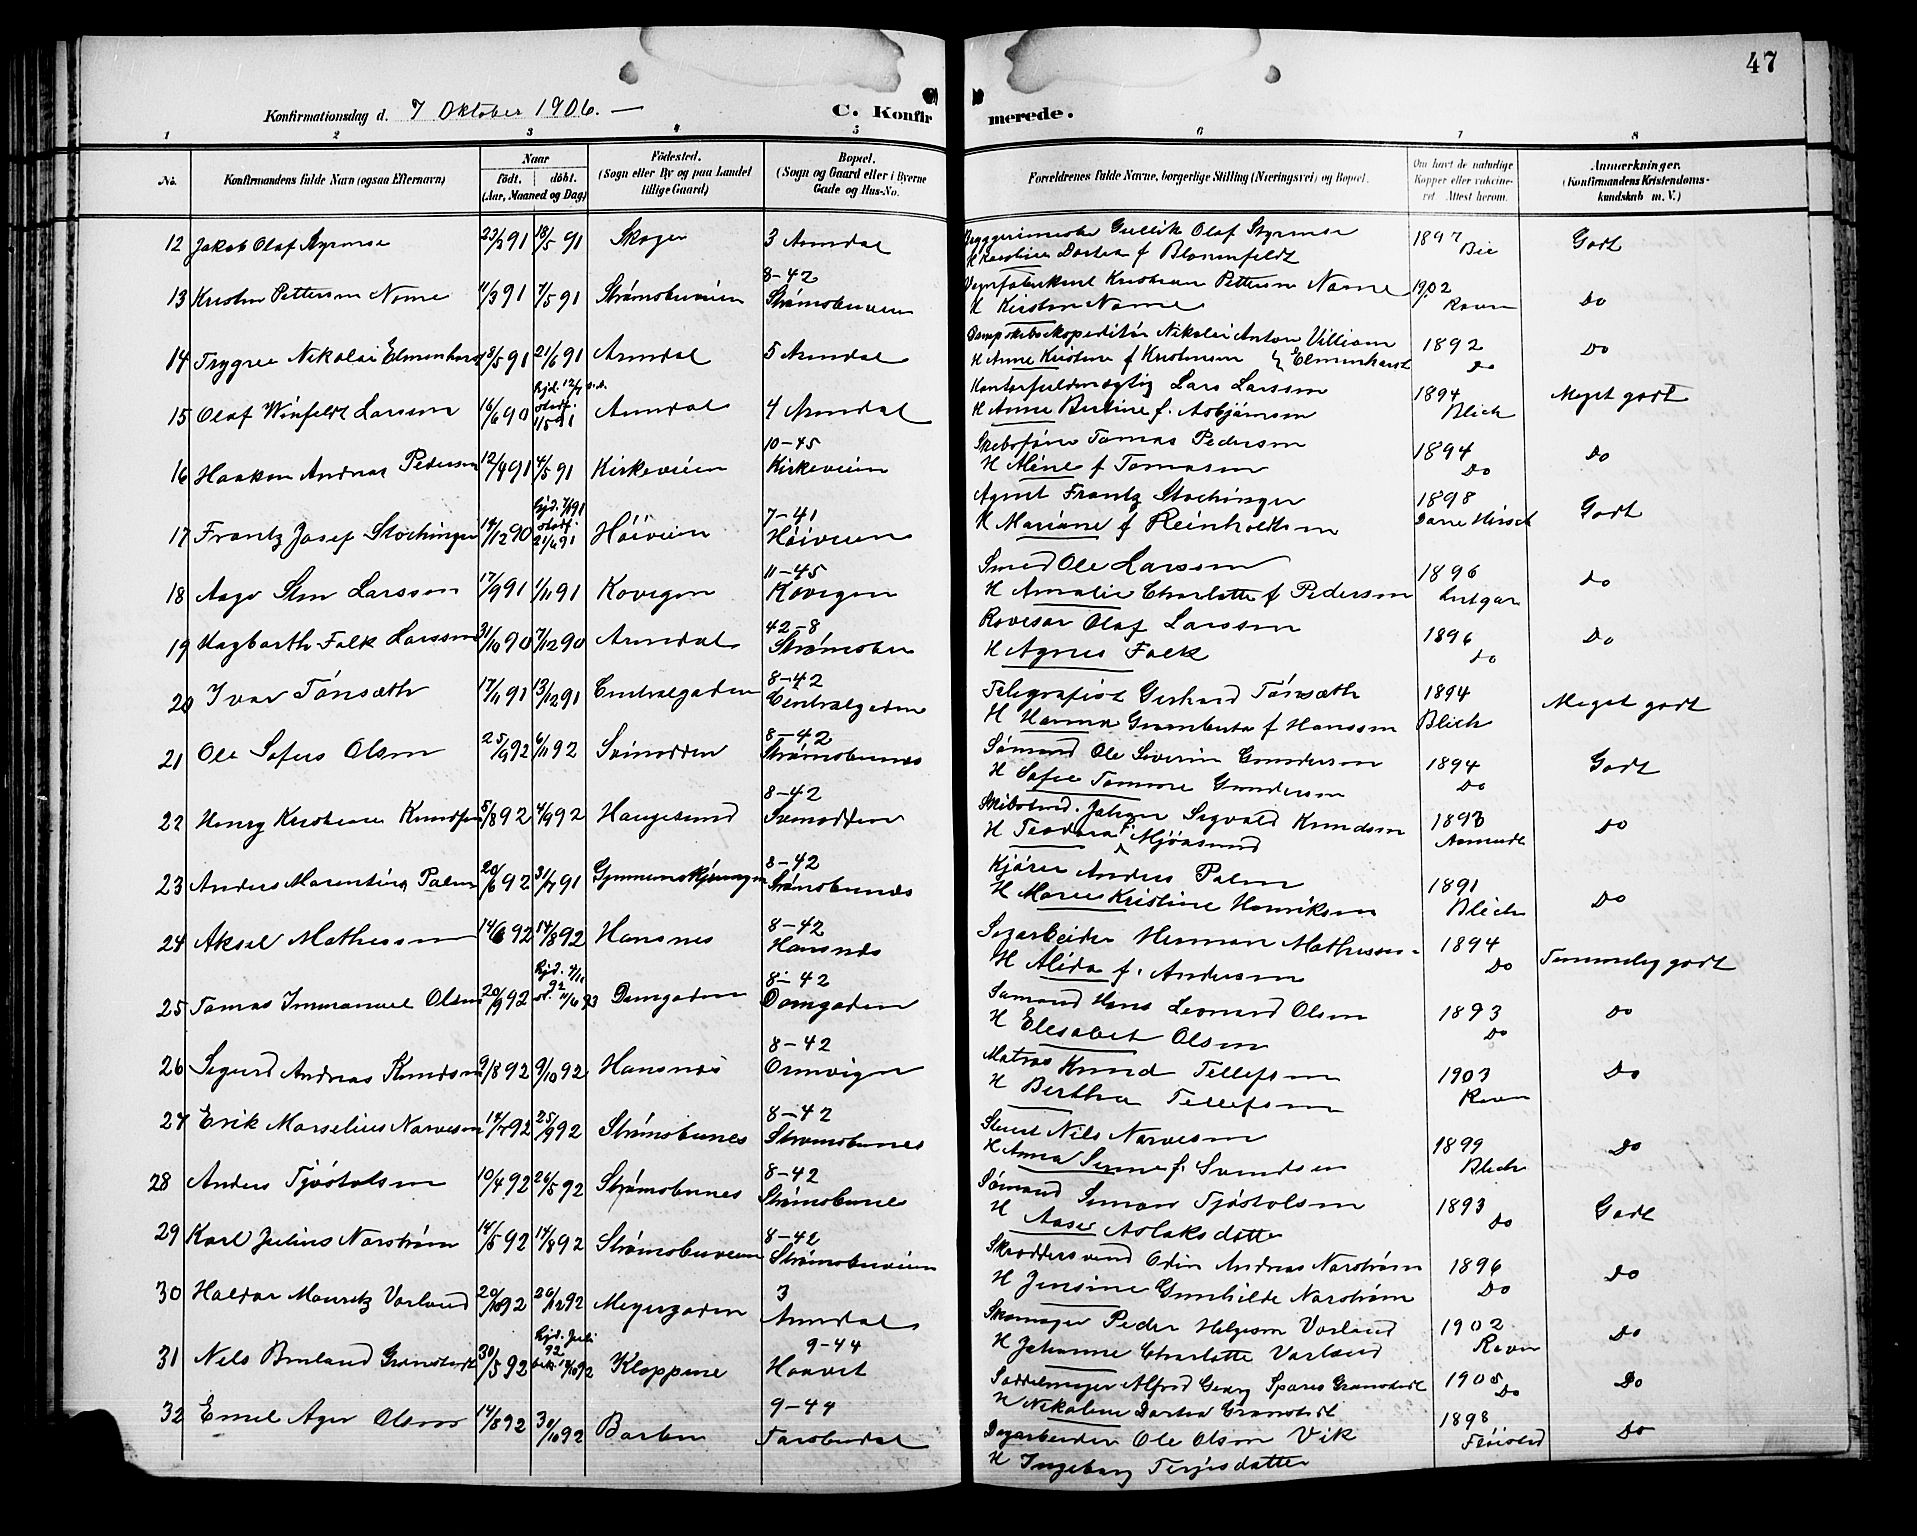 47
Konfirmationsdag d. 7 Oktober 1906. —
C. Konfirmerede.
1 2 3 4 5 6 7 8
No.
Konfirmandens fulde Navn (ogsaa Efternavn)
Naar
födt. döbt.
(Aar, Maaned og Dag)
Födested.
(Sogn eller By og paa Landet tillige Gaard)
Bopæl.
(Sogn og Gaard eller i Byerne Gade og Hus-No.
Forældrenes fulde Navne, borgerlige Stilling (Næringsvei) og Bopæl.
Om havt de naturlige Kopper eller vakcineret Attest herom.
Anmærkninger.
(Konfirmandens Kristendomskundskab m. V.)
12 Jakob Olaf 23/2 91 18/5 91 Skoger 3 Arendal Gullik Olaf
H Karoline Dortea f Blomfeldt 1897 Godt
13 Kristen Pettersen Nome 11/3 91 7/5 91 Strømsbuveien 8-42 Strømsbuveien Kristian Pettersen Nome
H Kirsten Nome 1902 Ravn Do
14 Trygve Nikolai Elmenhorst 18/5 91 21/6 91 Arendal 5 Arendal Dampskibsekspeditör Nikolai Anton Villiam
H Anne Kirstine f Kristensen Elmenhorst 1892 Do Do
15 Olaf Winfeldt Larssen 16/6 90 Hjd. 12/7 s.a. stadf. 1/5 91 Arendal 4 Arendal Kontorfuldmægtig Lars Larssen
H Anne Bertine f. Asbjørnsen 1894 Blich Meget godt
16 Haakon Andreas Pedersen 12/4 91 4/5 91 Kirkeveien 10-45 Kirkeveien Skibsfører Tomas Pedersen
H Aline f Tomasen 1894 Do Do
17 Frantz Josef Stockinger 14/12 90 stadf. 21/6 91 Höiveien 7-41 Höiveien Agent Frantz Stockinger
H Mariane f Reinholdtsen 1898 Godt
18 Aage Sten Larssen 17/9 91 1/11 91 Kovigen 11-45 Kovigen Smed Ole Larssen
H Amalie Charlotte f Pedersen 1896 Do
19 Hagbarth Falk Larssen 31/10 90 7/12 90 Arendal 42-8 Strømsbu Olaf Larssen
H Agnes Falk 1896 Do Do
20 Ivar Tönsæth 17/11 91 13/12 91 Centralgaden 8-42 Centralgaden Telegrafist Gerhard Tönsæth
H Hanna f Hanssen 1894 Blich Meget godt
21 Ole Sofus Olsen 25/9 92 6/11 92 Svinodden 8-42 Strømsbunes Sömand Ole Severin Gundersen
H Sofie Tomine Gundersen 1894 Do Godt
22 Henry Kristian Knudsen 5/8 92 4/9 92 Haugesund 8-42 Svinodden Johan Sigvald Knudsen
H Teodora f. Mjösund 1893 Do
23 Anders Marentius Palm 20/6 92 31/7 91 8-42 Strømsbunes Kjörer Anders Palm
H Maren Kristine Henriksen 1891 Blich Do
24 Aksel Mathesen 14/6 92 14/8 92 Hansnes 8-42 Hansnes Sagarbeider Herman Mathesen
H Alida f. Andersen 1894 Do Temmelig godt
25 Tomas Immanuel Olsen 20/9 92 Hjd. 4/11 92 st. 11/6 93 Damgaden 8-42 Damgaden Sømand Hans Leonard Olsen
H Elisabet Olsen 1893 Do Do
26 Sigurd Andreas Knudsen 9/8 92 9/10 92 Hansnes 8-42 Ormvigen Matros Knud Tellefsen
H Bertha Tellefsen 1903 Ravn Do
27 Erik Marselius Narvesen 14/7 92 25/9 92 Strømsbunes 8-42 Strømsbunes Stuert Nils Narvesen
H Anna f. Svendsen 1899 Blich Do
28 Anders Tjöstolsen 10/4 92 26/5 92 Strømsbunes 8-42 Strømsbunes Sömand Simon Tjöstolsen
H Aase Aslaksdatter 1893 Do Godt
29 Karl Julius Narström 14/5 92 14/8 92 Strømsbuveien 8-42 Strømsbuveien Skræddersvend Odin Andreas Narström
H Jensine Gunhilde Narström 1896 Do Do
30 Haldor Mauritz Vorland 20/10 92 26/12 92 Meyergaden 3 Arendal Skomager Peder Helgesen Vorland
H Johanne Charlotte Vorland 1902 Ravn Do
31 Nils Granstedt 30/5 92 Hjd. Juli 92 Kloppene 9-44 Haavet Saddelmager Alfred Georg Granstedt
H Nikoline Dortea Granstedt 1905 Do Do
32 Emil Ager Olsen 14/8 92 30/10 92 Barbu 9-44 Dagarbeider Ole Olsen Vik
H Ingeborg Terjesdatter 1898 Do